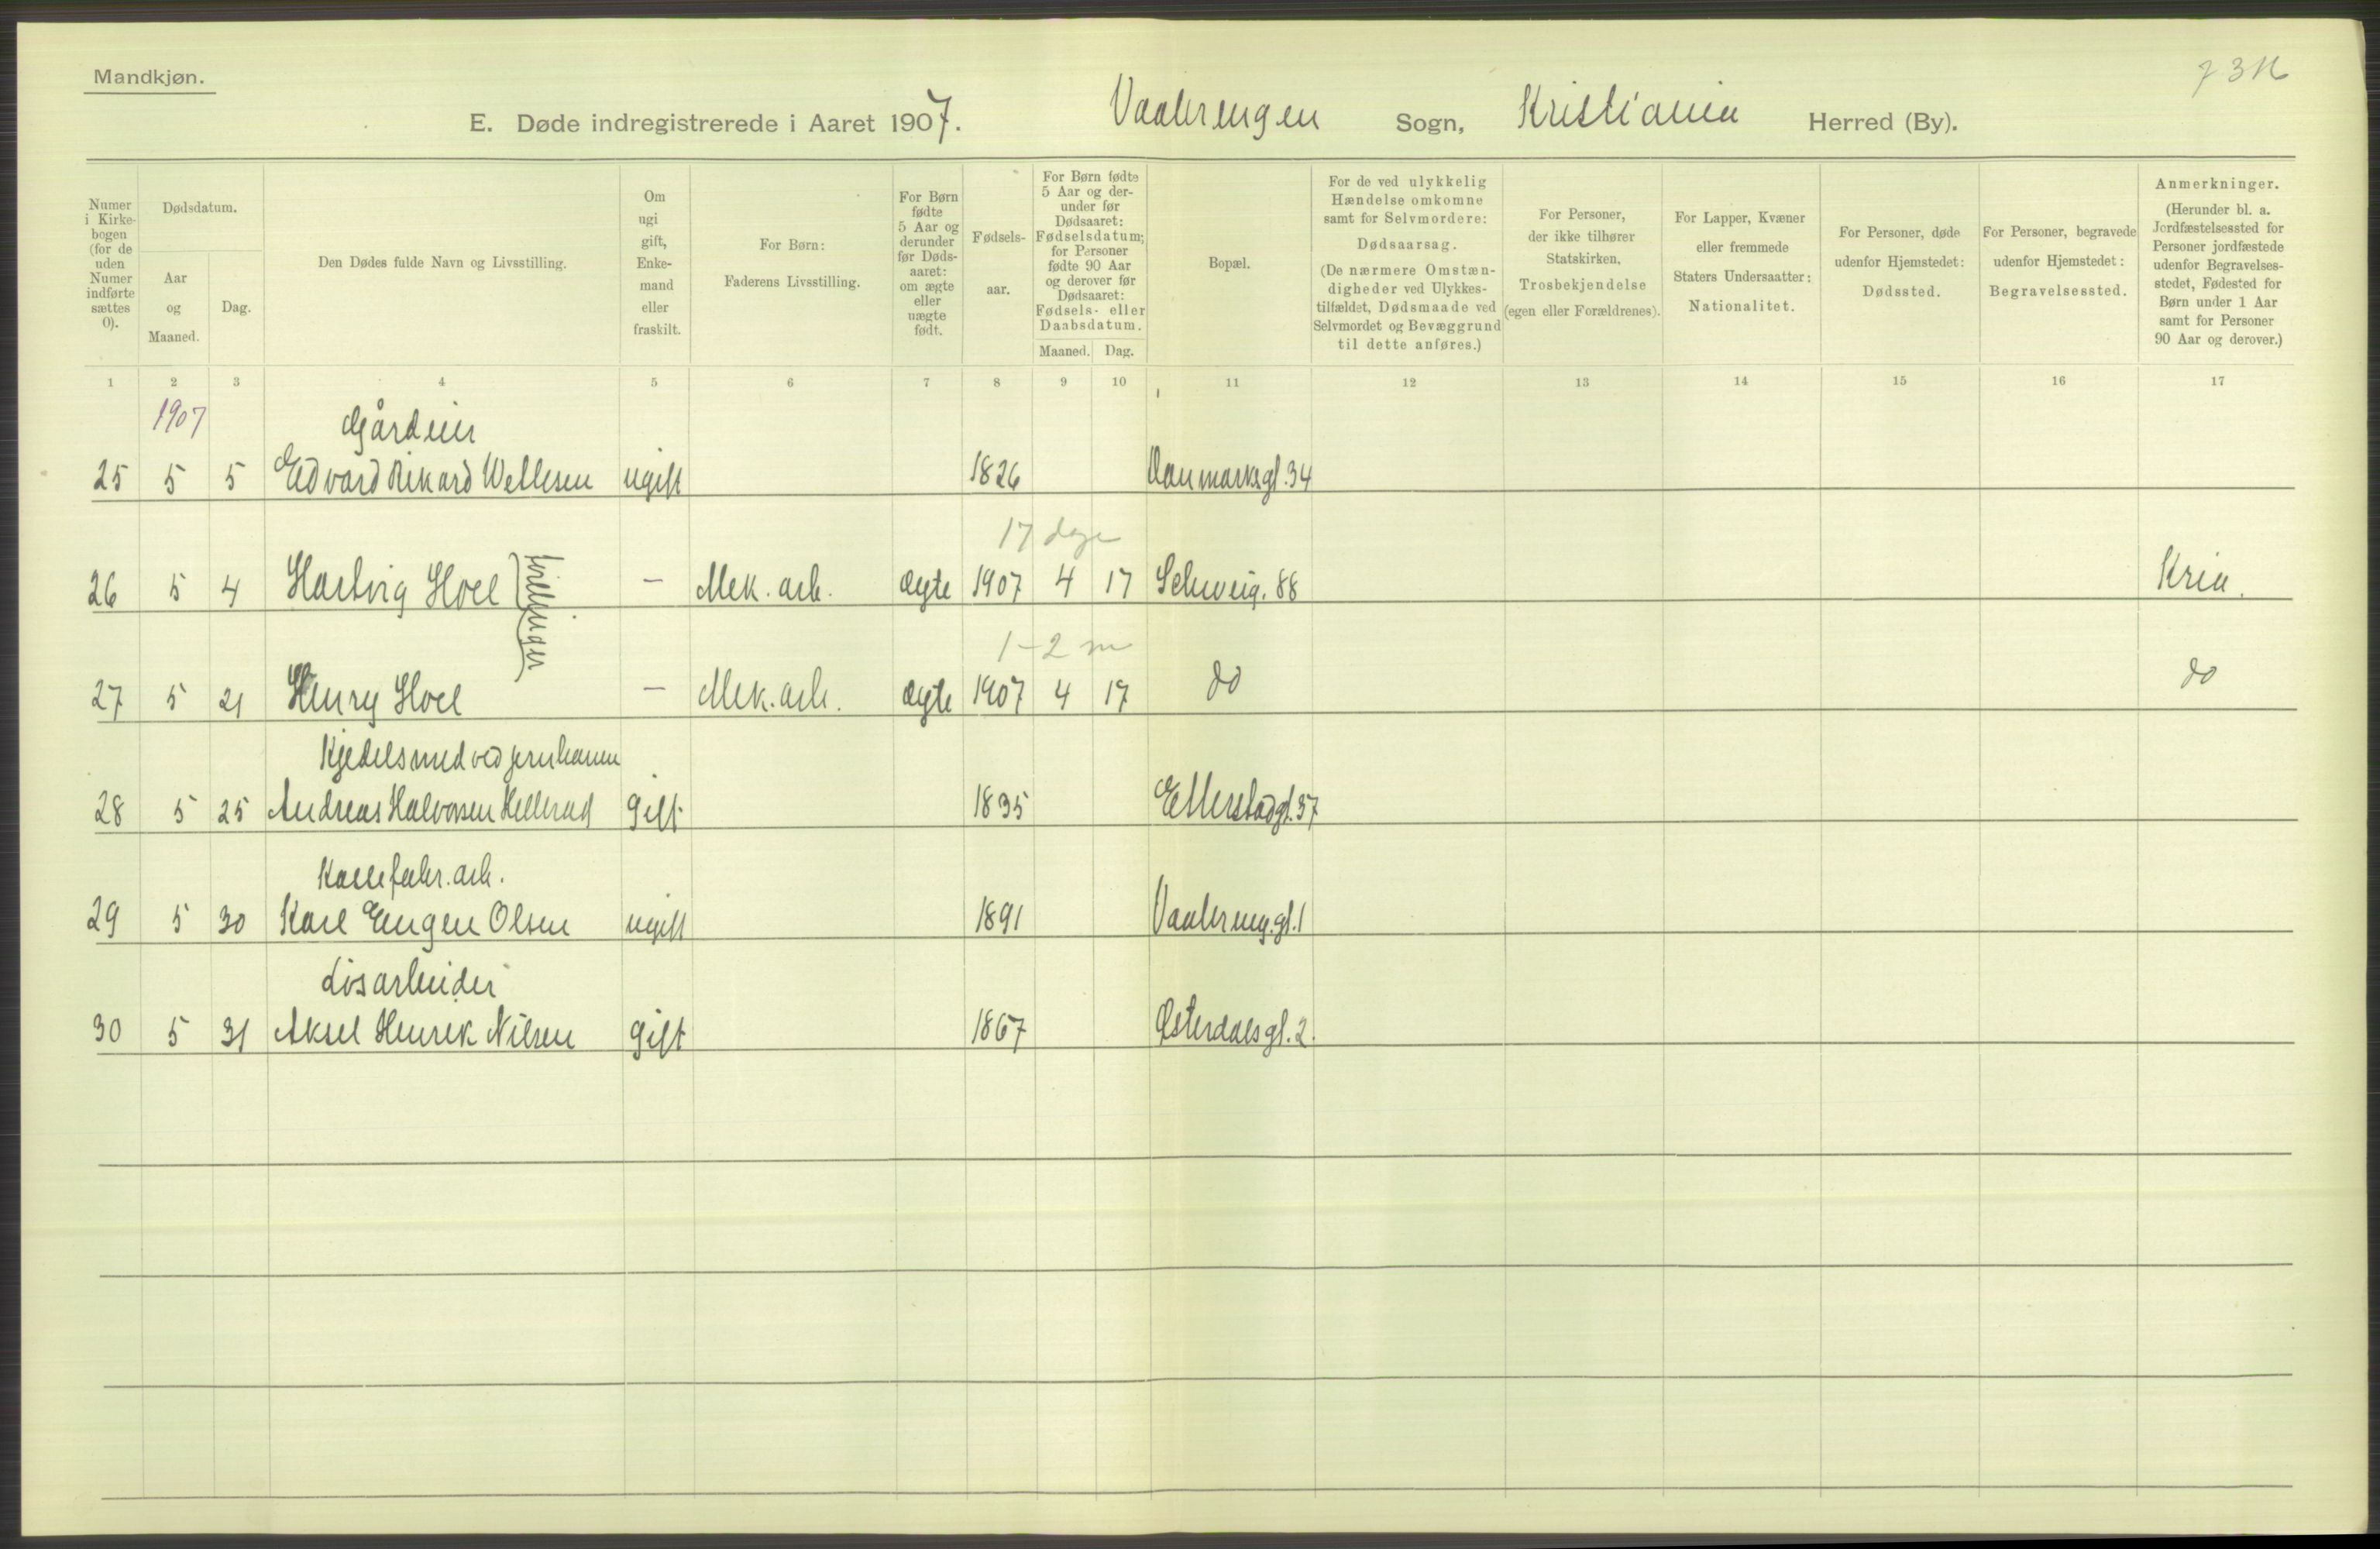 Mandkjøn.
E. Døde indregistrerede i Aaret 1907. Vaalerengen Sogn, Kristiania Herred (By).
Numer i Kirke-bogen (for de uden Numer indførte sættes 0).
Dødsdatum.
Aar og Maaned.
Dag.
Den Dødes fulde Navn og Livsstilling.
Om ugi gift, Enke-mand eller fraskilt.
For Børn: Faderens Livsstilling.
For Børn fødte 5 Aar og derunder før Døds-aaret: om ægte eller uægte født.
Fødsels-aar.
For Børn fødte 5 Aar og der-under før Dødsaaret: Fødselsdatum; for Personer fødte 90 Aar og derover før Dødsaaret: Fødsels- eller Daabsdatum.
Maaned. Dag.
Bopæl.
For de ved ulykkelig Hændelse omkomne samt for Selvmordere: Dødsaarsag. (De nærmere Omstæn-digheder ved Ulykkes-tilfældet, Dødsmaade ved Selvmordet og Bevæggrund til dette anføres.)
For Personer, der ikke tilhører Statskirken, Trosbekjendelse (egen eller Forældrenes).
For Lapper, Kvæner eller fremmede Staters Undersaatter: Nationalitet.
For Personer, døde udenfor Hjemstedet: Dødssted.
For Personer, begravede udenfor Hjemstedet: Begravelsessted.
Anmerkninger. (Herunder bl. a. Jordfæstelsessted for Personer jordfæstede udenfor Begravelses-stedet, Fødested for Børn under 1 Aar samt for Personer 90 Aar og derover.)
1 2 3 4 5 6 7 8 9 10 11 12 13 14 15 16 17
1907 Gårdeier
25 5 5 Edvard Rikard Wellesen ugift 1826 Danmarksgt. 34
17 dage
26 5 4 Hartvig Hoel tvillinger — Mek. arb. ægte 1907 4 17 Schweig. 88 Kria.
1-2 m
27 5 21 Henry Hoel — Mek. arb. ægte 1907 4 17 do do
Kjedelsmed ved jernbanen
28 5 25 Andreas Halvorsen Hellerud Gift 1835 Etterstadgt. 37
29 5 30 Karl Eugen Olsen ugift 1891 Vaalereng. gt. 1
Løsarbeider
30 5 31 Aksel Henrik Nilsen Gift 1867 Østerdalsgt. 2.